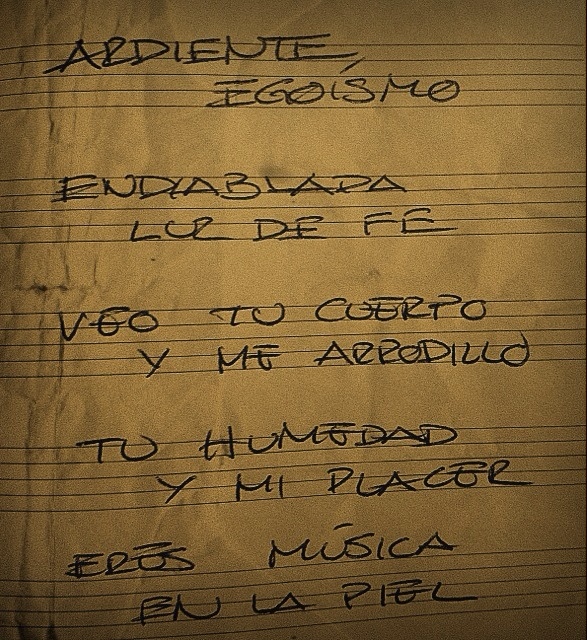 ARDIENTE,
EGOÍSMO
ENDIABLADA
LUZ DE FE
VEO TU CUERPO
Y ME ARRODILLO
TU HUMEDAD
Y MI PLACER
ERES MÚSICA
EN LA PIEL